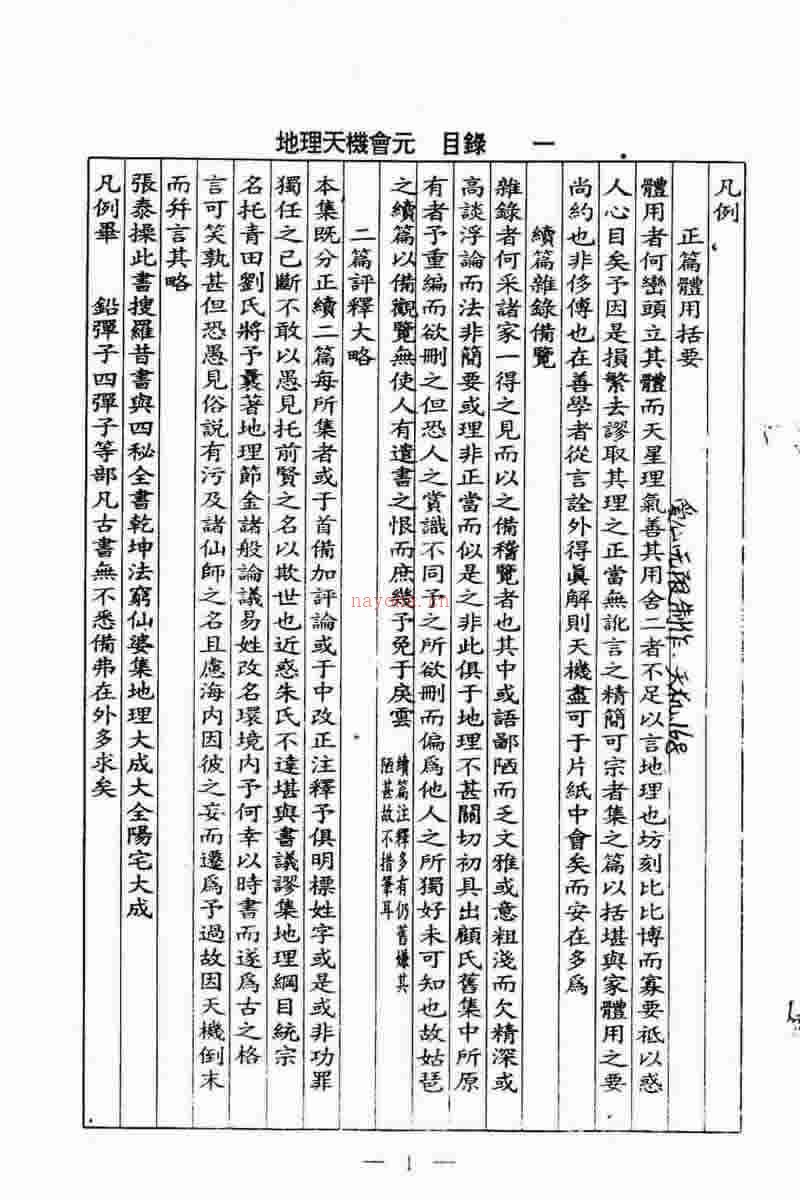 地理天機會元　目錄　一
凡例
正篇體用括要
體用者何巒頭立其體而天星理氣善其用舍二者不足以言地理也坊刻比比博而寡要祇以惑
人心目矣予因是損繁去謬取其理之正當無訛言之精簡可宗者集之篇以括堪輿家體用之要
尚約也非侈傳也在善學者從言詮外得眞解則天機盡可于片紙中會矣而安在多爲
續篇雜錄備覽
雜錄者何采諸家一得之見而以之備稽覽者也其中或語鄙陋而乏文雅或意粗淺而欠精深或
高談浮論而法非簡要或理非正當而似是之非此俱于地理不甚關切初具出顧氏舊集中所原
有者予重編而欲刪之但恐人之賞識不同予之所欲刪而偏爲他人之所獨好未可知也故姑琶
之續篇以備觀覽無使人有遺書之恨而庶幾予免于戾雲
續篇注釋多有仍舊嫌其
陋甚故不措筆耳
二篇評釋大略
本集既分正續二篇每所集者或于首備加評論或于中改正注釋予俱明標姓字或是或非功罪
獨任之已斷不敢以愚見托前賢之名以欺世也近惑朱氏不達堪輿書議謬集地理綱目統宗
名托青田劉氏將予曩著地理節金諸般論議易姓改名環境內予何幸以時書而遂爲古之格
言可笑孰甚但恐愚見俗說有污及諸仙師之名且慮海內因彼之妄而遷爲予過故因天機倒末
而幷言其略
張泰操此書搜羅昔書與四秘全書乾坤法窮仙婆集地理大成大全陽宅大成
凡例畢　鉛彈子四彈子等部凡古書無不悉備弗在外多求矣
nayona.cn
— 1 —